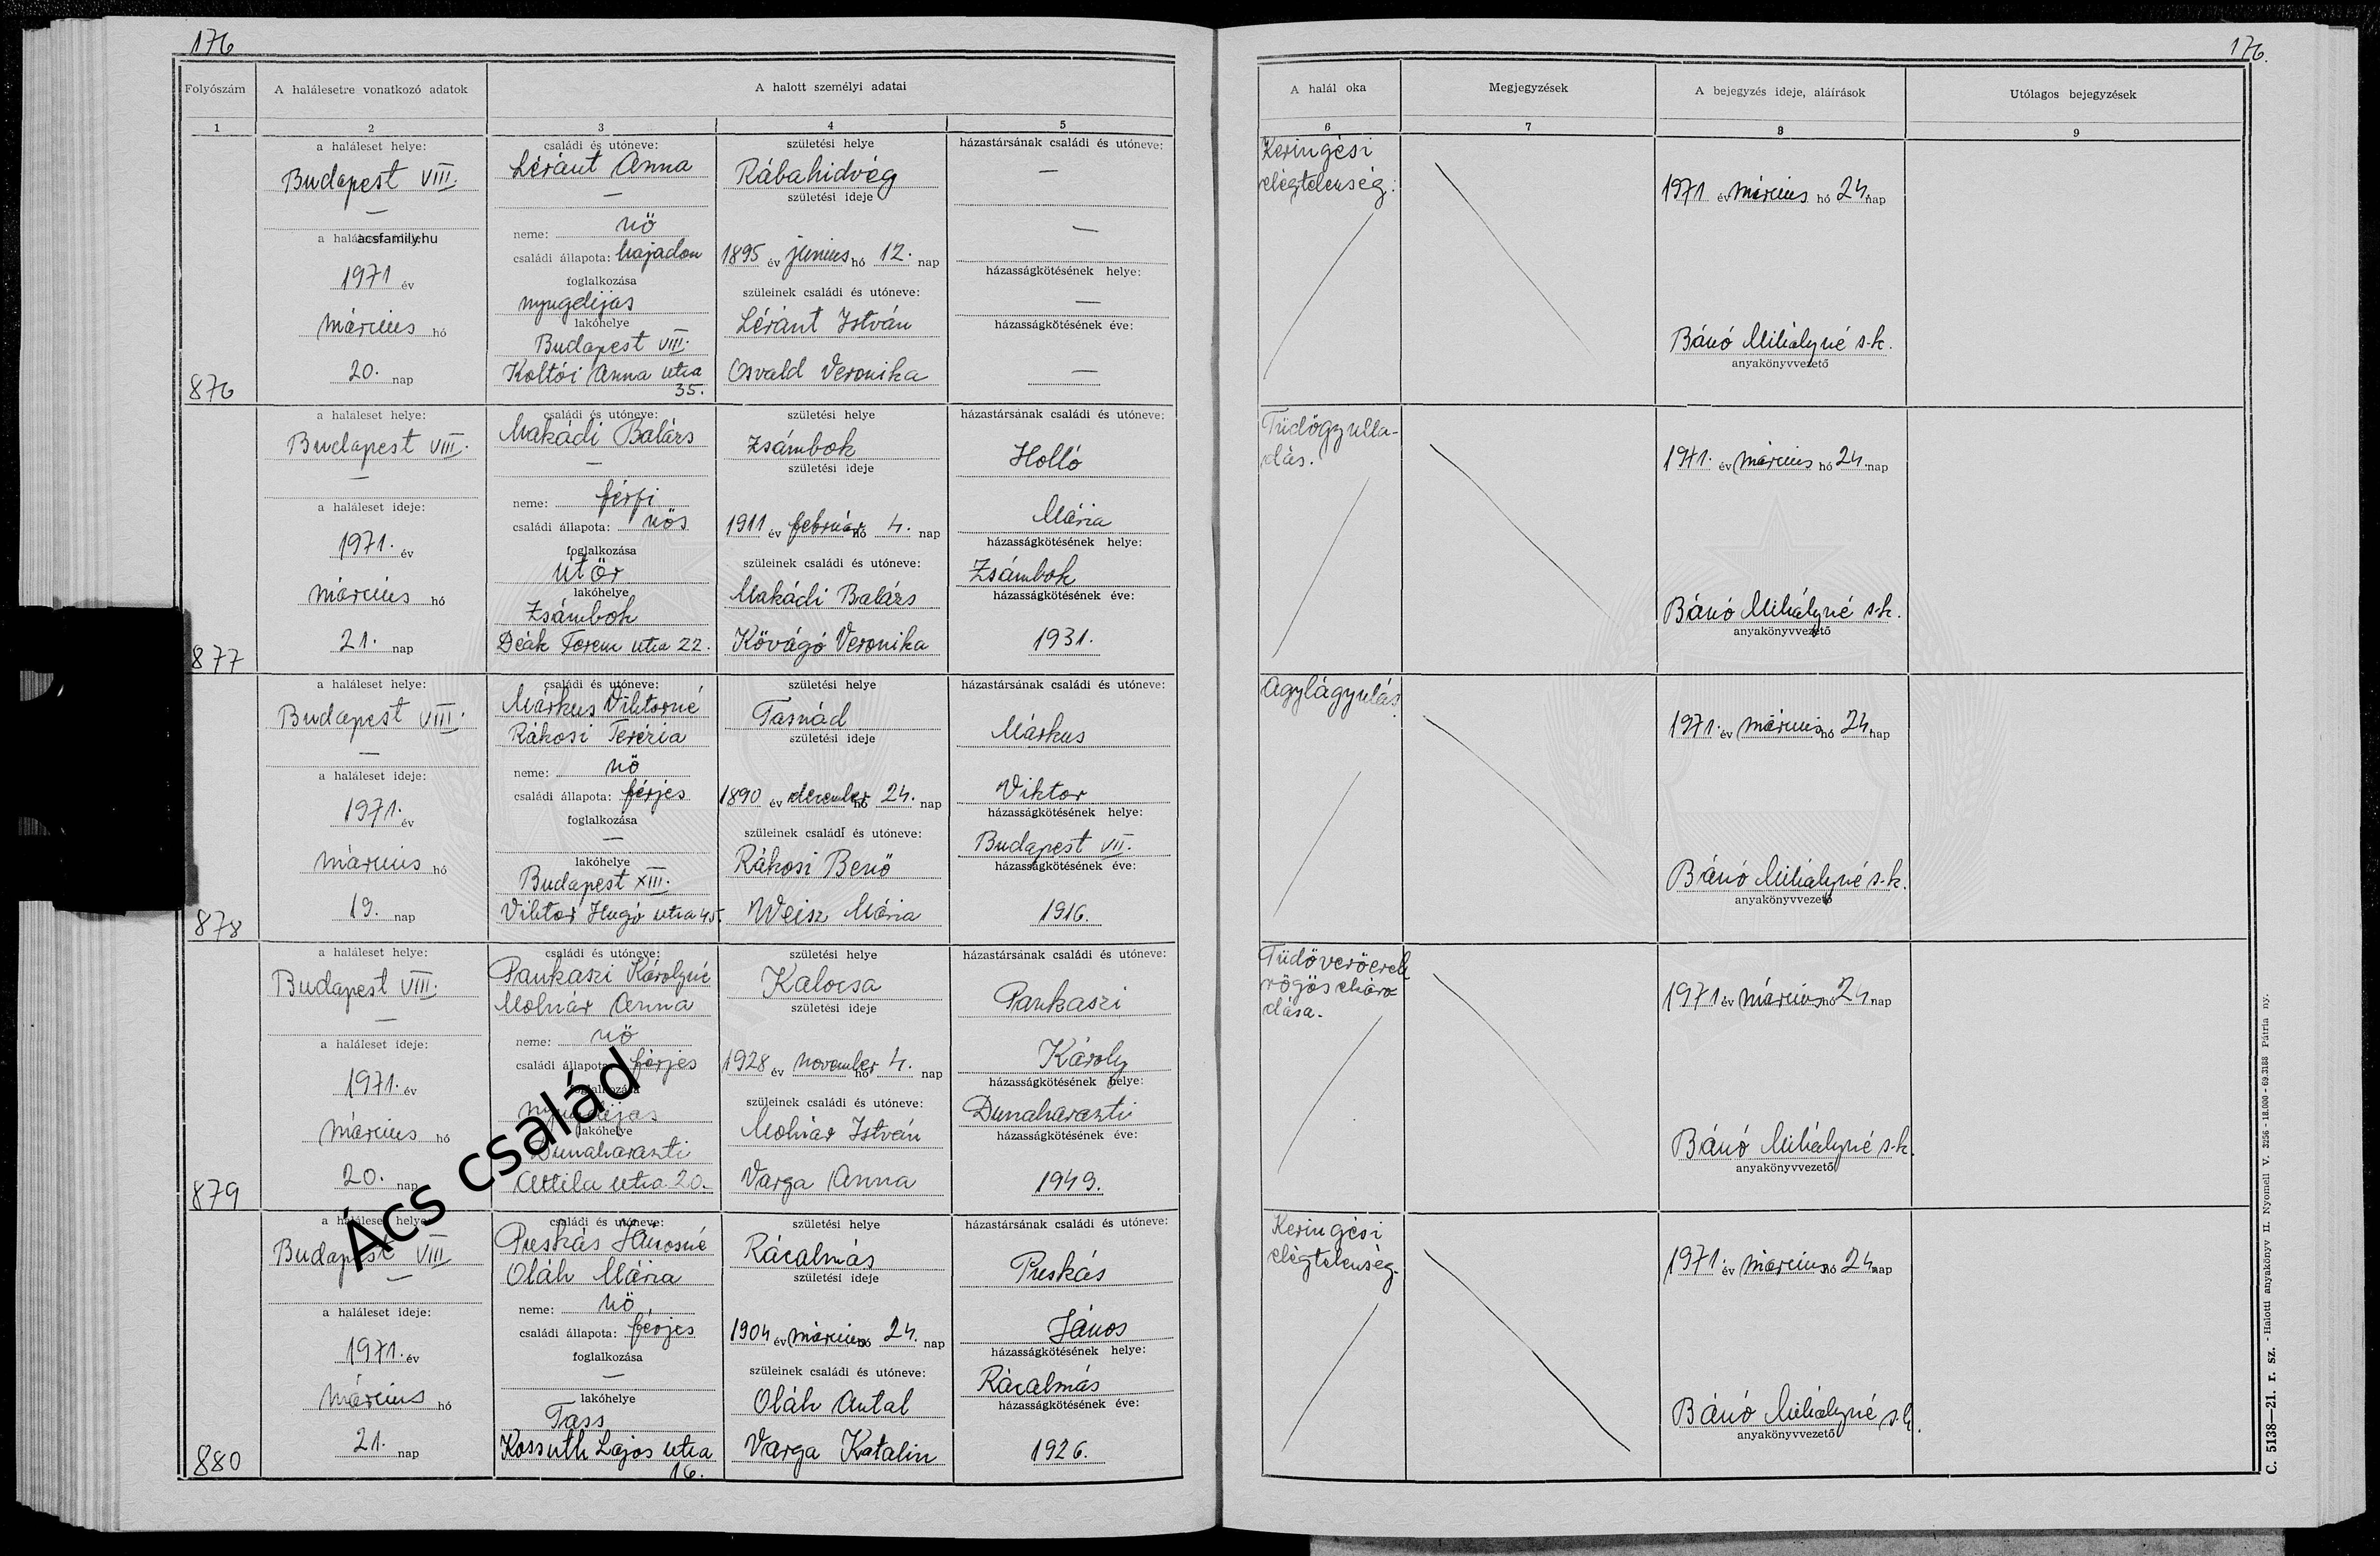 176
176.
Folyószám
A halálesetre vonatkozó adatok
A halott személyi adatai
A halál oka
Megjegyzések
A bejegyzés ideje, aláírások
Utólagos bejegyzések
1
2
3
4
5
6
7
8
9
876
a haláleset helye:
Budapest VIII.
—
acsfamily.hu
1971 év
március hó
20. nap
családi és utóneve:
Léránt Anna
—
neme: nő
családi állapota: hajadon
foglalkozása
nyugdíjas
lakóhelye
Budapest VIII.
Koltói Anna utca
35.
születési helye
Rábahidvég
születési ideje
1895 év június hó 12. nap
szüleinek családi és utóneve:
Léránt István
Osvald Veronika
házastársának családi és utóneve:
—
—
házasságkötésének helye:
—
házasságkötésének éve:
—
Keringési
elégtelenség.
1971 év március hó 24. nap
Bánó Mihályné s.k.
anyakönyvvezető
877
a haláleset helye:
Budapest VIII.
—
a haláleset ideje:
1971. év
március hó
21. nap
családi és utóneve:
Makádi Balázs
—
neme: férfi
családi állapota: nős
foglalkozása
útőr
lakóhelye
Zsámbok
Deák Ferenc utca 22.
születési helye
Zsámbok
születési ideje
1911 év február hó 4. nap
szüleinek családi és utóneve:
Makádi Balázs
Kővágó Veronika
házastársának családi és utóneve:
Holló
Mária
házasságkötésének helye:
Zsámbok
házasságkötésének éve:
1931.
Tüdőgyulla-
dás.
1971. év március hó 24. nap
Bánó Mihályné s.k.
anyakönyvvezető
878
a haláleset helye:
Budapest VIII.
—
a haláleset ideje:
1971. év
március hó
19. nap
családi és utóneve:
Márkus Viktorné
Rákosi Terézia
neme: nő
családi állapota: férjes
foglalkozása
—
lakóhelye
Budapest XIII.
Viktor Hugó utca 45.
születési helye
Tasnád
születési ideje
1890 év december hó 24. nap
szüleinek családi és utóneve:
Rákosi Benő
Weisz Mária
házastársának családi és utóneve:
Márkus
Viktor
házasságkötésének helye:
Budapest VII.
házasságkötésének éve:
1916.
Agylágyulás.
1971. év március hó 24. nap
Bánó Mihályné s.k.
anyakönyvvezető
879
a haláleset helye:
Budapest VIII.
—
a haláleset ideje:
1971. év
március hó
20. nap
családi és utóneve:
Pankaszi Károlyné
Molnár Anna
neme: nő
családi állapota: férjes
foglalkozása
nyugdíjas
lakóhelye
Dunaharaszti
Attila utca 20.
születési helye
Kalocsa
születési ideje
1928 év november hó 4. nap
szüleinek családi és utóneve:
Molnár István
Varga Anna
házastársának családi és utóneve:
Pankaszi
Károly
házasságkötésének helye:
Dunaharaszti
házasságkötésének éve:
1949.
Tüdőverőerek
rögös elzáró
dása.
1971 év március hó 24 nap
Bánó Mihályné s.k.
anyakönyvvezető
Ács család
880
a haláleset helye:
Budapest VIII
—
a haláleset ideje:
1971. év
március hó
21. nap
családi és utóneve:
Puskás Jánosné
Oláh Mária
neme: nő
családi állapota: férjes
foglalkozása
—
lakóhelye
Tass
Kossuth Lajos utca
16.
születési helye
Rácalmás
születési ideje
1904 év március hó 24. nap
szüleinek családi és utóneve:
Oláh Antal
Varga Katalin
házastársának családi és utóneve:
Puskás
János
házasságkötésének helye:
Rácalmás
házasságkötésének éve:
1926.
Keringési
elégtelenség.
1971. év március hó 24 nap
Bánó Mihályné s.k.
anyakönyvvezető
C. 5138—21. r. sz. - Halotti anyakönyv II. Nyomell V. 3256 - 18.000 - 69.3188 Pátria ny.